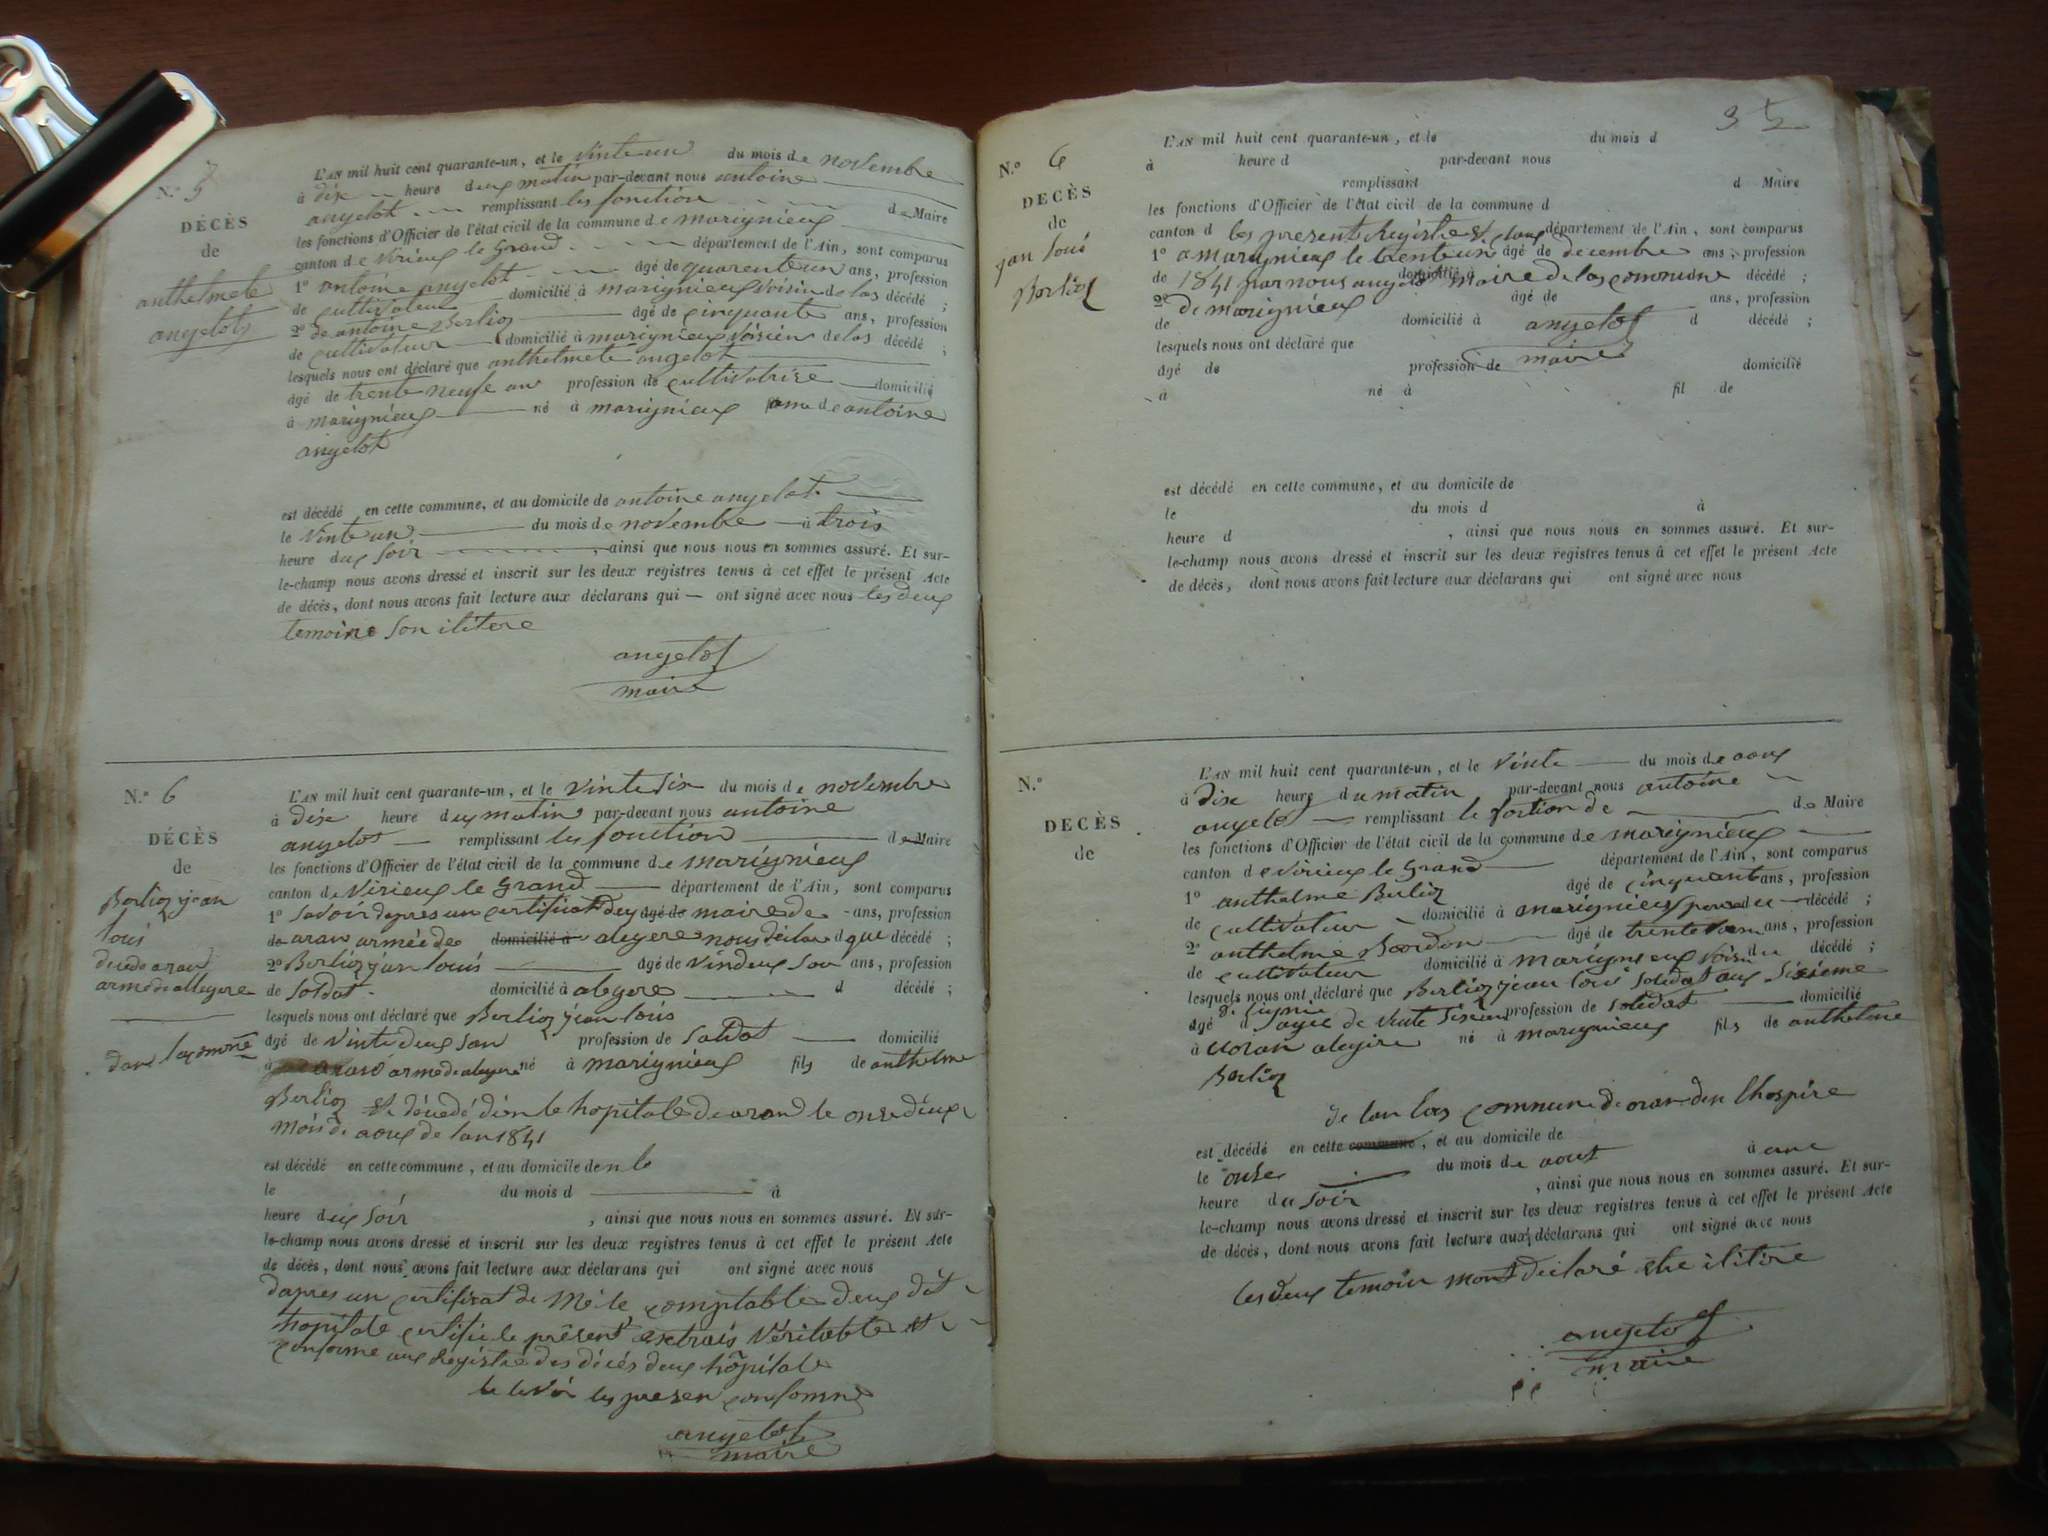 N.º 5
DÉCÈS
de
anthelmete
angelot
L'AN mil huit cent quarante-un, et le vinte un du mois de novembre
à dix heure deux matin par-devant nous antoine
angelot remplissant les fonction de Maire
les fonctions d'Officier de l'état civil de la commune de marignieux
canton de virieux le Grand département de l'Ain, sont comparus
1º antoine angelot âgé de quarente un ans, profession
de cultivateur domicilié à marignieux voisin de las décédé ;
2º de antoine Berlioz âgé de cinquante ans, profession
de cultivateur domicilié à marignieux voisien de las décédé ;
lesquels nous ont déclaré que anthelmete angelot
âgé de trente neuf an profession de cultivatrise domicilié
à marignieux né à marignieux fame de antoine
angelot
est décédé en cette commune, et au domicile de antoine angelot
le vinte un du mois de novembre à trois
heure deux soir , ainsi que nous nous en sommes assuré. Et sur-
le-champ nous avons dressé et inscrit sur les deux registres tenus à cet effet le présent Acte
de décès, dont nous avons fait lecture aux déclarans qui ont signé avec nous les deux
temoins son ilitere
angelot
maire
N.º 6
DÉCÈS
de
Berlioz jean
louis
décédé a oran
armé de allegere
dans la comune
L'AN mil huit cent quarante-un, et le vinte six du mois de novembre
à dix heure deux matin par-devant nous antoine
angelot remplissant les fonction de Maire
les fonctions d'Officier de l'état civil de la commune de marignieux
canton de virieux le Grand département de l'Ain, sont comparus
1º savoir dapres un certificat deux âgé de maire de ans, profession
de oran armée de domicilié à alegere nous déclare d que décédé ;
2º Berlioz jean louis âgé de vindeux son ans, profession
de soldat domicilié à alegere d décédé ;
lesquels nous ont déclaré que Berlioz jean louis
âgé de vinte deux son profession de soldat domicilié
à oran armé de alegere né à marignieux fils de anthelme
Berlioz et décédé den le hopitale de orand le onse deux
mois de aoux de lan 1841
est décédé en cette commune, et au domicile den le
le du mois d à
heure deux soir , ainsi que nous nous en sommes assuré. Et sur-
le-champ nous avons dressé et inscrit sur les deux registres tenus à cet effet le présent Acte
de décès, dont nous avons fait lecture aux déclarans qui ont signé avec nous
dapres un certificat de Mr le comptable deux dit
hopitale certifie le présent extrais véritable et
conforme aux registre des décès deux hôpitale
les presen conforme
angelot
maire
35
N.º 6
DECÈS
de
jan louis
Berlioz
L'AN mil huit cent quarante-un, et le du mois d
à heure d par-devant nous
remplissant d Maire
les fonctions d'Officier de l'état civil de la commune d
canton d les present Registre et clous département de l'Ain, sont comparus
1º a marignieux le trente un âgé de decembre ans, profession
de 1841 par nous angelot domicilié à maire de las commune décédé ;
2º de marignieux âgé de ans, profession
de domicilié à angelot d décédé ;
lesquels nous ont déclaré que maire
âgé de profession de domicilié
à né à fil de
est décédé en cette commune, et au domicile de
le du mois d à
heure d , ainsi que nous nous en sommes assuré. Et sur-
le-champ nous avons dressé et inscrit sur les deux registres tenus à cet effet le présent Acte
de décès, dont nous avons fait lecture aux déclarans qui ont signé avec nous
N.º
DECÈS
de
L'AN mil huit cent quarante-un, et le vinte du mois de aoux
à dixe heure du matin par-devant nous antoine
angelo remplissant le fontion de de Maire
les fonctions d'Officier de l'état civil de la commune de marignieux
canton de virieux le Grand département de l'Ain, sont comparus
1º anthalme Berlioz âgé de cinquant ans, profession
de cultivateur domicilié à marignieux pere du décédé ;
2º anthelme Bordon âgé de trente ans, profession
de cultivateur domicilié à marignieux voisin du décédé ;
lesquels nous ont déclaré que Berlioz jean louis soledat aux sisieme
âgé d agee de vente profession de soledat domicilié
à oran alegire né à marignieux fils de anthelme
Berlioz
de lan las commune de oran den lhospire
est décédé en cette commune, et au domicile de
le onse du mois de aout à une
heure du soir , ainsi que nous nous en sommes assuré. Et sur-
le-champ nous avons dressé et inscrit sur les deux registres tenus à cet effet le présent Acte
de décès, dont nous avons fait lecture aux déclarans qui ont signé avec nous
les deux temoin mont declaré etre ilitire
angelot
maire